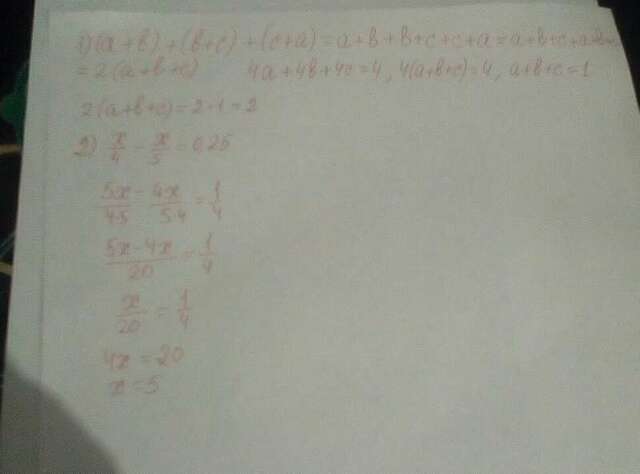 1) (a+b)+(b+c)+(c+a)=a+b+b+c+c+a=a+b+c+a+b+c
=2(a+b+c) 4a+4b+4c=4, 4(a+b+c)=4, a+b+c=1
2(a+b+c)=2·1=2
2) x/4 - x/5 = 0,25
5x/4·5 - 4x/5·4 = 1/4
5x-4x/20 = 1/4
x/20 = 1/4
4x=20
x=5